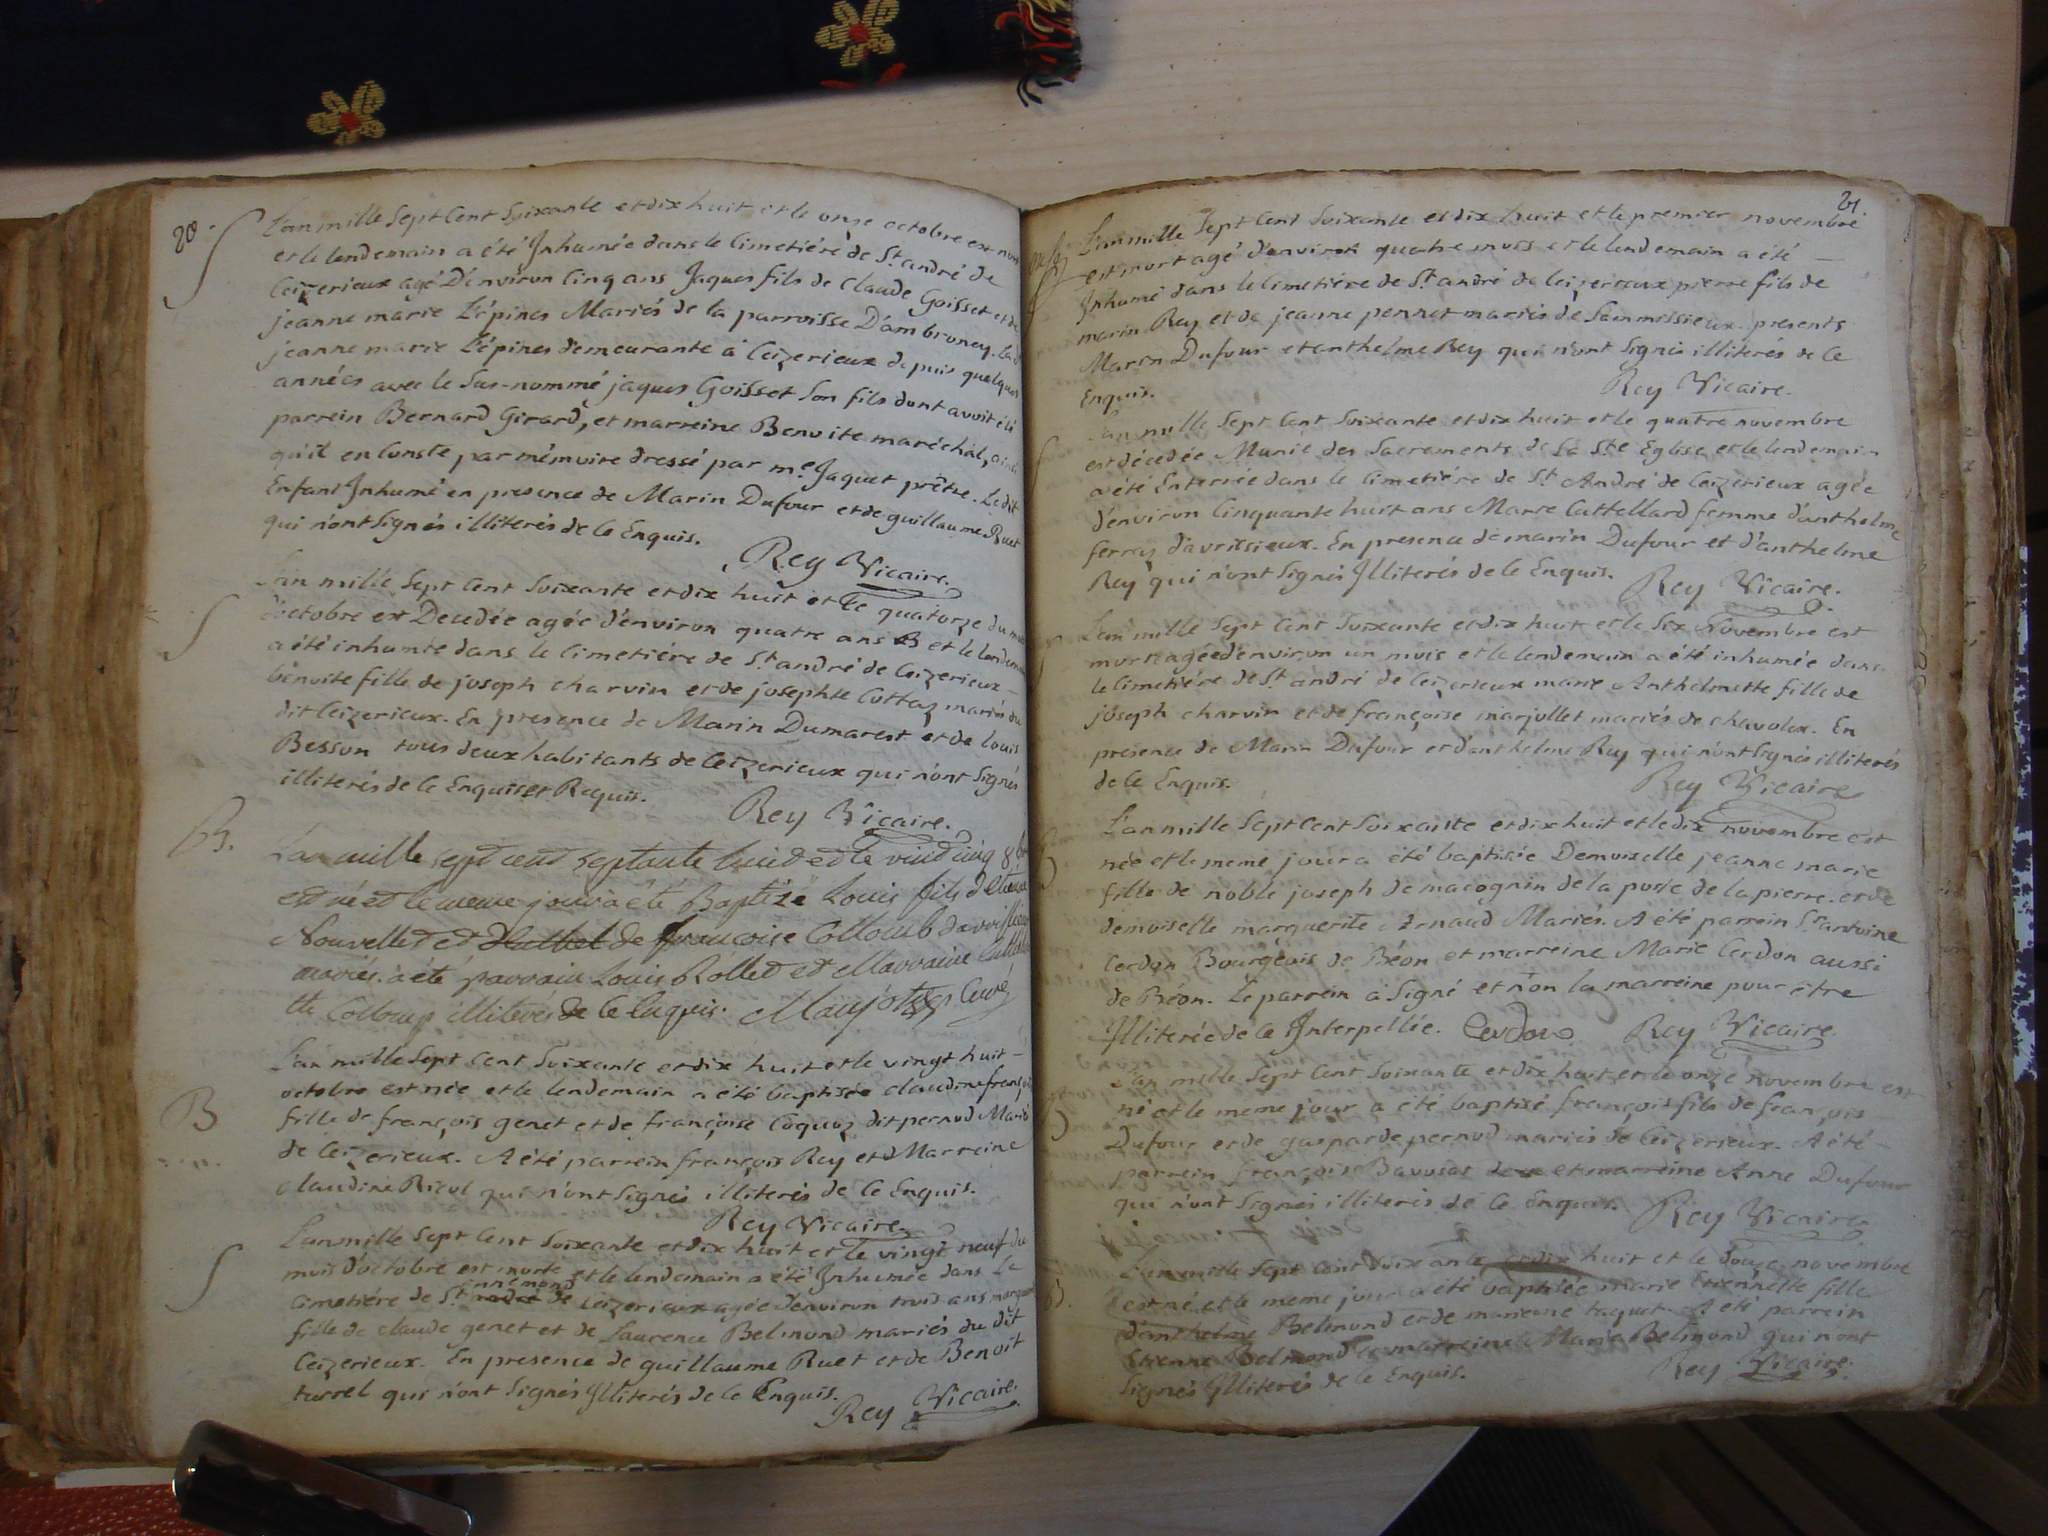 20.
L'an mille Sept Cent Soixante et dix huit et le onze octobre est mort
et le lendemain a été Inhumée dans le Cimetiére de St. andré de
Ceizerieux agé D'environ Cinq ans Jaques fils de Claude Goisset et de
jeanne marie L'épines Mariés de la parroisse D'ambroney. La de
jeanne marie L'épines demeurante à Ceizerieux depuis quelques
années avec le Sus-nommé jaques Goisset Son fils dont avoit été
parrein Bernard Girard, et marreine Benoite maréchal, ainsi
qu'il en Conste par mémoire dressé par me. Jaquet prêtre. Le dit
Enfant Inhumé en presence de Marin Dufour et de guillaume Ruet
qui n'ont Signés illiterés de Ce Enquis.
Rey Vicaire.
L'an mille Sept Cent Soixante et dix huit et le quatorze du mois
d'octobre est Decedée agée d'environ quatre ans B et le lendemain
a été inhumée dans le Cimetiére de St. andré de Ceizerieux
benoite fille de joseph charvin et de josephte Cottaz mariés du
dit Ceizerieux. En presence de Marin Dumarest et de Louis
Besson tous deux habitants de Ceizerieux qui n'ont Signés
illiterés de Ce Enquis et Requis.
Rey Vicaire.
B.
L'an mille sept cent septante huit et le vind cinq 8bre
est né et le meme jour à été Baptizé Louis fils d'Etienne
Nouvellet et de françoise Colloub
mariés. à été parrain Louis Rollet et Marraine
Colloub illiterés de Ce Enquis. Maujot Curé
L'an mille Sept Cent Soixante et dix huit et le vingt huit
B
octobre est née et le lendemain a été baptisée claudine françoise
fille de françois genet et de françoise Coquoz dit pernod Mariés
de Ceizerieux. A été parrein françois Rey et Marreine
Claudine Ricol qui n'ont Signés illiterés de Ce Enquis.
Rey Vicaire.
L'an mille Sept Cent Soixante et dix huit et le vingt neuf du
mois d'octobre est morte et le lendemain a été Inhumée dans Le
Cimetiére de St. andré de Ceizerieux agée d'environ trois ans
fille de claude genet et de Laurence Belmond mariés du dit
Ceizerieux. En presence de guillaume Ruet et de Benoit
turrel qui n'ont Signés Illiterés de Ce Enquis.
Rey Vicaire.
21.
L'an mille Sept Cent Soixante et dix huit et le premier novembre
est mort agé d'environ quatre mois et le lendemain a été
Inhumé dans le Cimetiére de St. andré de Ceizerieux pierre fils de
marin Rey et de jeanne pennet mariés de Sammissieux. presents
Marin Dufour et anthelme Rey qui n'ont Signés illiterés de Ce
Enquis.
Rey Vicaire.
L'an mille Sept Cent Soixante et dix huit et le quatre novembre
est décedée Munie des Sacrements de La Ste Eglise et le lendemain
a été Enterrée dans le Cimetiére de St. André de Ceizerieux agée
d'environ Cinquante huit ans Marie Cattellard femme d'anthelme
ferraz d'avrissieux. En presence de marin Dufour et d'anthelme
Rey qui n'ont Signés Illiterés de Ce Enquis.
Rey Vicaire.
L'an mille Sept Cent Soixante et dix huit et le Six Novembre est
morte agée d'environ un mois et le lendemain a été inhumée dans
le Cimetiére de St. andré de Ceizerieux marie Anthelmette fille de
joseph charvin et de françoise marjollet mariés de chavolex. En
presence de Marin Dufour et d'anthelme Rey qui n'ont Signés illiterés
de Ce Enquis.
Rey Vicaire
L'an mille Sept Cent Soixante et dix huit et le dix novembre est
née et le meme jour a été baptisée Demoiselle jeanne marie
fille de noble joseph de macognin de la poste de la pierre. et de
demoiselle marguerite Arnaud Mariés. A été parrein Sr. antoine
Cerdon Bourgeois de Béon et marreine Marie Cerdon aussi
de Béon. Le parrein à Signé et non la marreine pour être
Illiterée de Ce Interpellée. Cerdon Rey Vicaire.
L'an mille Sept Cent Soixante et dix huit et le onze novembre est
né et le meme jour a été baptisé françois fils de françois
Dufour et de gasparde pernod mariés de Ceizerieux. A été
parrein françois Bavosat et marreine Anne Dufour
qui n'ont Signés illiterés de Ce Enquis.
Rey Vicaire.
L'an mille Sept Cent Soixante et dix huit et le Douze novembre
est né et le meme jour a été baptisée marie Etiennette fille
d'anthelme Belmond et de marienne taquet. A été parrein
Etienne Belmond et marreine Marie Belmond qui n'ont
Signés Illiterés de Ce Enquis.
Rey Vicaire.